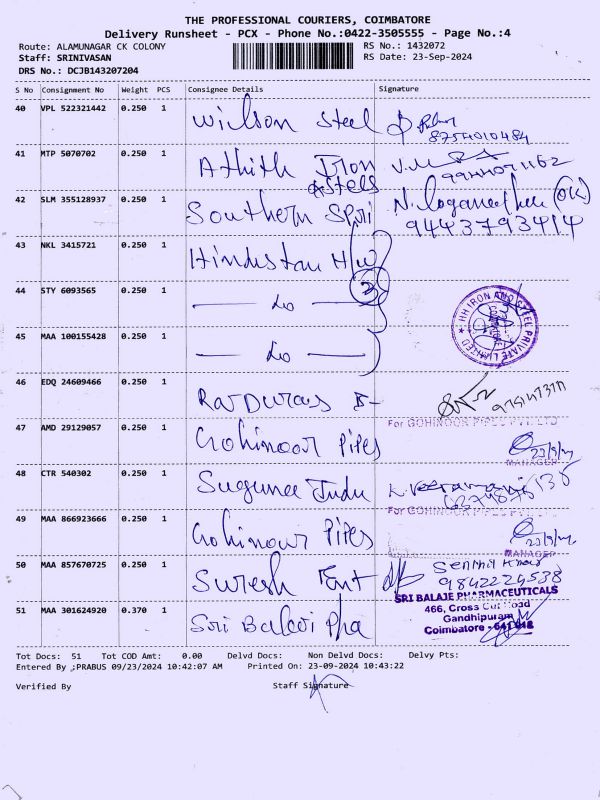 THE PROFESSIONAL COURIERS, COIMBATORE
Delivery Runsheet - PCX - Phone No.:0422-3505555 - Page No.:4
Route: ALAMUNAGAR CK COLONY RS No.: 1432072
Staff: SRINIVASAN RS Date: 23-Sep-2024
DRS No.: DCJB143207204
S No Consignment No Weight PCS Consignee Details Signature
40 VPL 522321442 0.250 1 Wilson Steel 8754010484
41 MTP 5070702 0.250 1 Athith Iron
& Steels
42 SLM 355128937 0.250 1 Southern Spri N. Loganathan (OK)
9443793414
43 NKL 3415721 0.250 1 Hindustan H/w
44 STY 6093565 0.250 1 — do — 3
HH IRON AND STEEL PRIVATE LIMITED
45 MAA 100155428 0.250 1 — do —
46 EDQ 24609466 0.250 1
47 AMD 29129057 0.250 1 Gohinoor Pipes For GOHINOOR PIPES PVT LTD
MANAGER
48 CTR 540302 0.250 1 Suguna Indu K. Veeramani
49 MAA 866923666 0.250 1 Gohinour Pipes For GOHINOOR PIPES PVT LTD
MANAGER
50 MAA 857670725 0.250 1 Suresh Ent Senthil Kumar
9842224538
51 MAA 301624920 0.370 1 Sri Balaji Pha SRI BALAJE PHARMACEUTICALS
466, Cross Cut Road
Gandhipuram
Coimbatore - 641 012
Tot Docs: 51 Tot COD Amt: 0.00 Delvd Docs: Non Delvd Docs: Delvy Pts:
Entered By ;PRABUS 09/23/2024 10:42:07 AM Printed On: 23-09-2024 10:43:22
Verified By Staff Signature